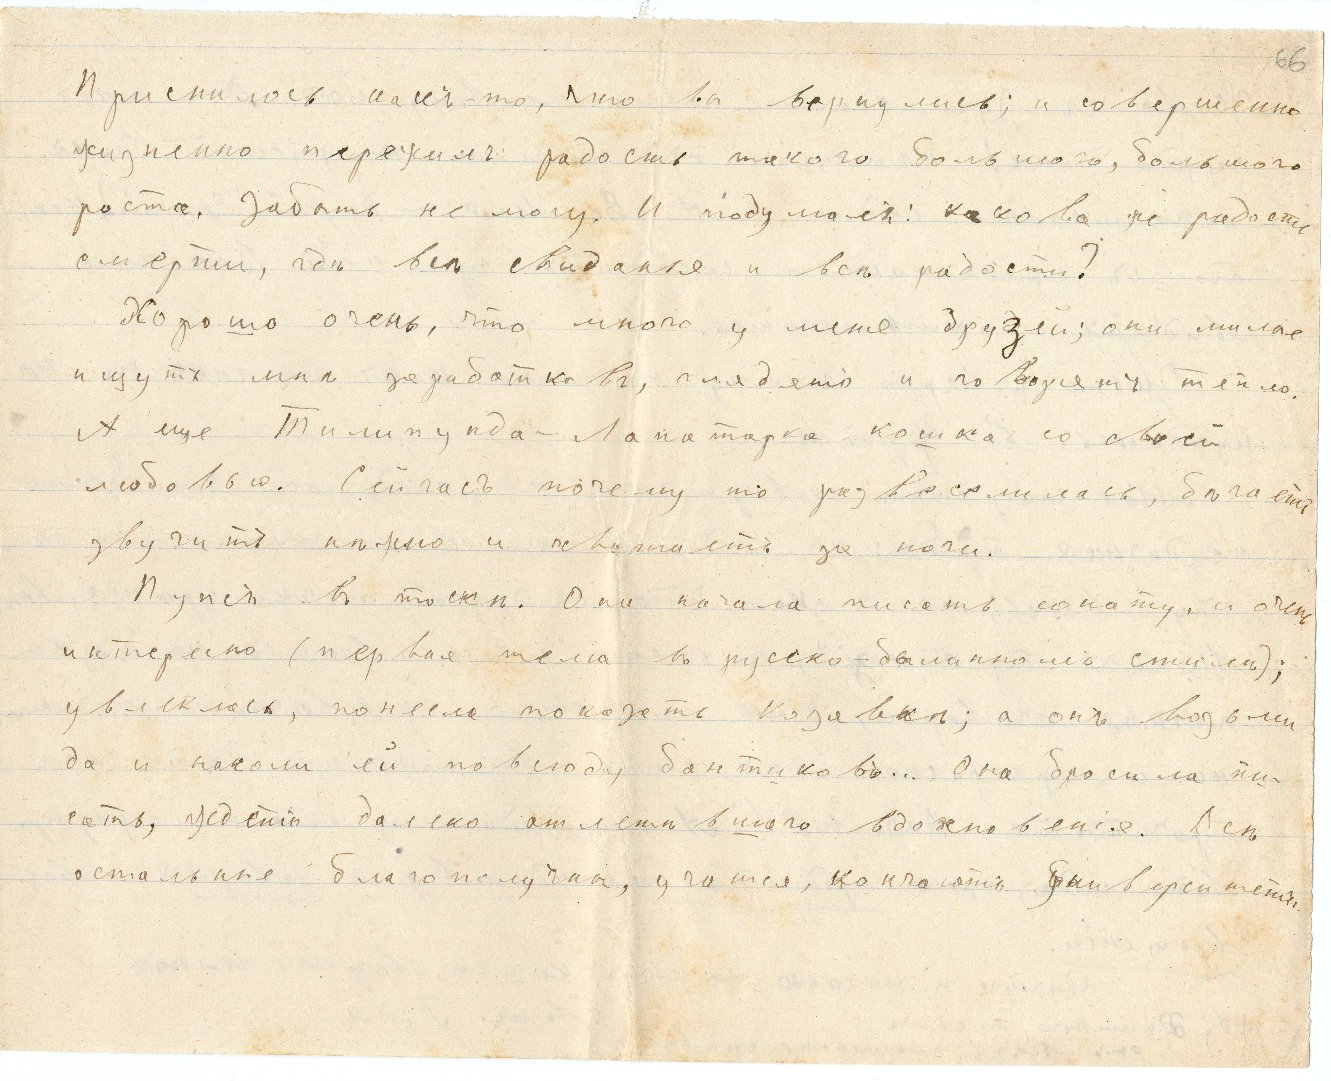 66
Приснилось какъ-то, что вы вернулись; и совершенно
жизненно пережилъ радость такого большого, большого
роста. Забыть не могу. И подумалъ: какова же радость
смерти, гдѣ всѣ свиданья и всѣ радости?
Хорошо очень, что много у меня друзей; они милые
ищутъ мнѣ заработковъ, глядятъ и говорятъ тепло.
А еще Тилипунда-Лапатарка кошка со своей
любовью. Сейчасъ почему то развеселилась, бѣгаетъ
звучитъ нѣжно и хватаетъ за ноги.
Пупсъ въ тоскѣ. Она начала писать сонату, и очень
интересно (первая тема въ русско-былинномъ стилѣ);
увлеклась, понесла показать Козявкѣ; а онъ возьми
да и наколи ей повсюду бантиковъ... Она бросила пи-
сать, ждетъ далеко отлетѣвшаго вдохновенія. Всѣ
остальные благополучны, учатся, кончаютъ университеты.